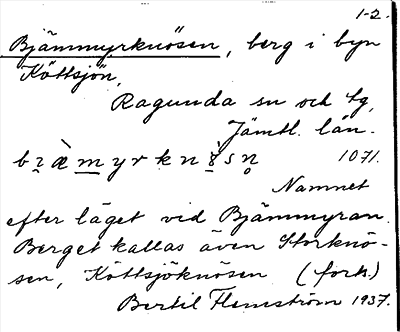 1-2.
Bjämmyrknösen, berg i byn
Köttsjön,
Ragunda sn och tg,
Jämtl. län.
1071.
Namnet
efter läget vid Bjämmyran.
Berget kallas även Storknö-
sen, Köttsjöknösen (forts.)
Bertil Flemström 1937.